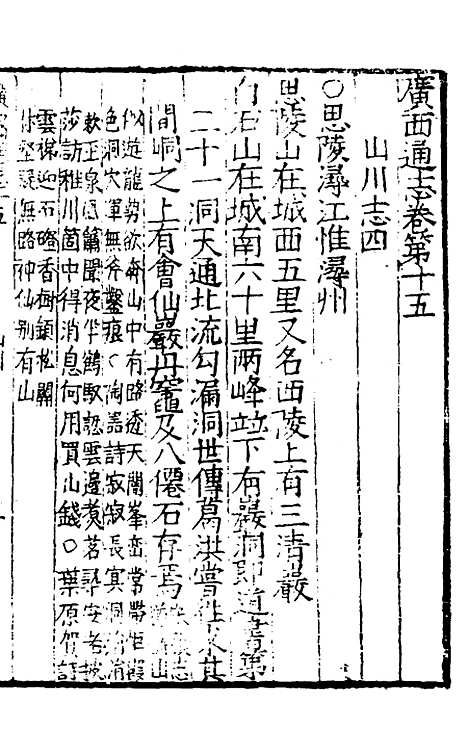 廣西通志卷第十五
山川志四
○思陵潯江惟潯州
思陵山在城西五里又名西陵上有三清巖
白石山在城南六十里兩峰並下有巖洞即道書第
二十一洞天通北流勾漏洞世傳葛洪嘗往來其
間峒之上有會仙巖丹竈及八僊石存焉
似遊龍勢欲奔山中有路透天關峯巒常帶恒霞
色洞穴軍無斧鑿痕○陶詩寂寂長寞洞
軟正泉扃鑰聞夜半鶴馭認雲邊煮茗安
莎訪稚川箇中得消息何用買山錢○葉原詩
雲梯迎石磴香樹鎖松關
疑無路神仙别有山